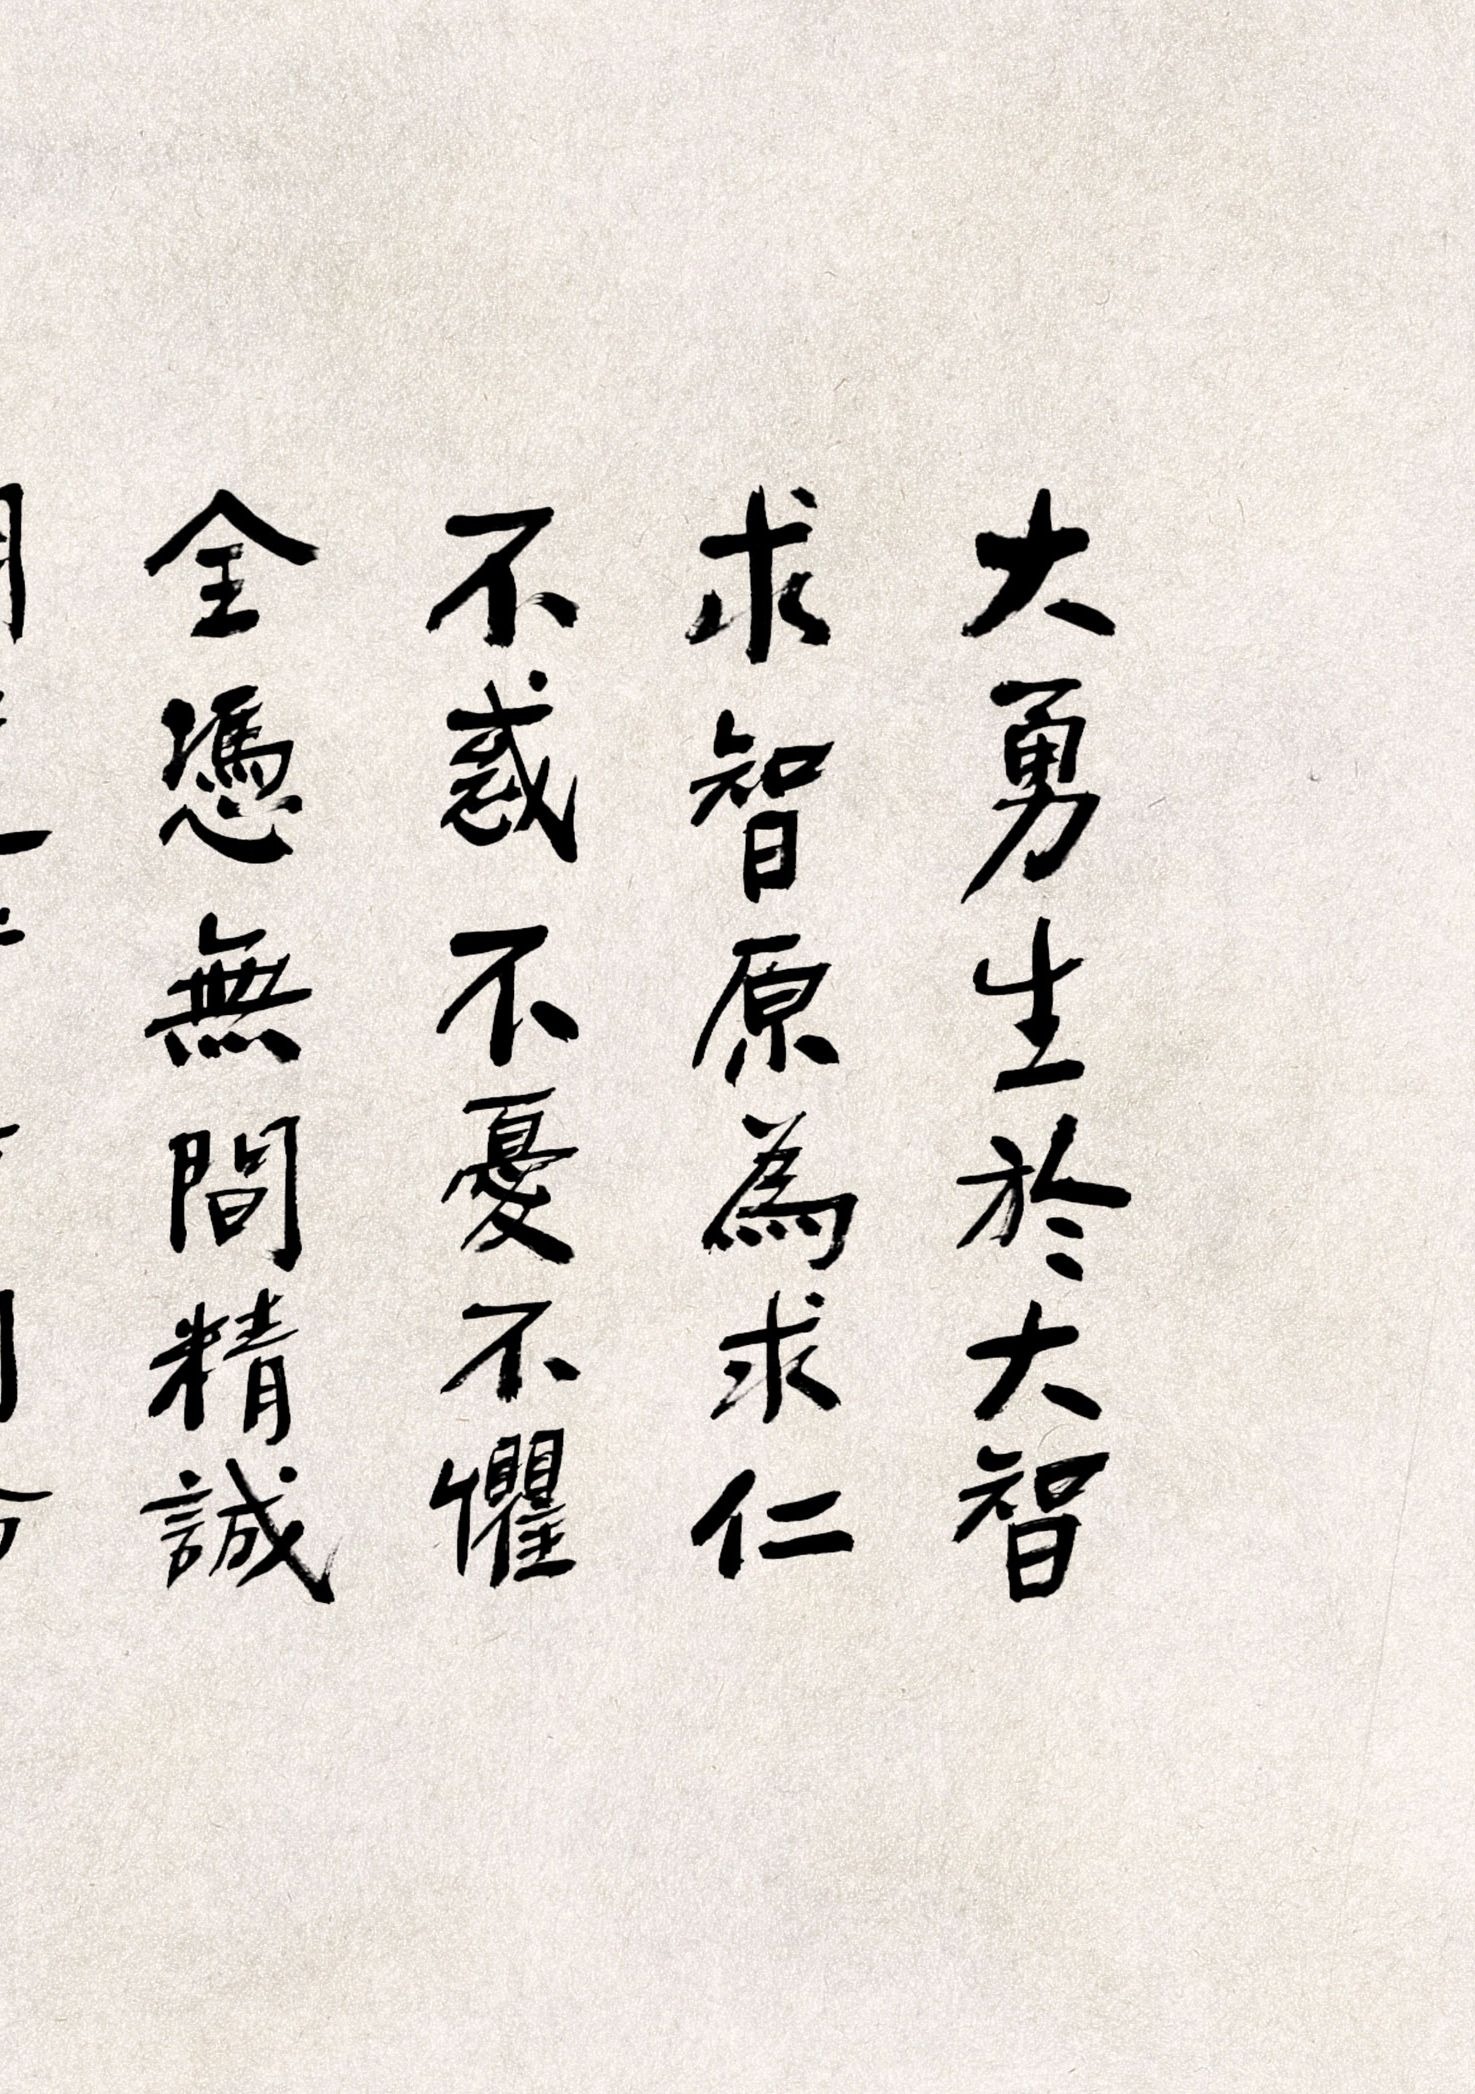 大勇生於大智
求智原為求仁
不惑不憂不懼
全憑無間精誠